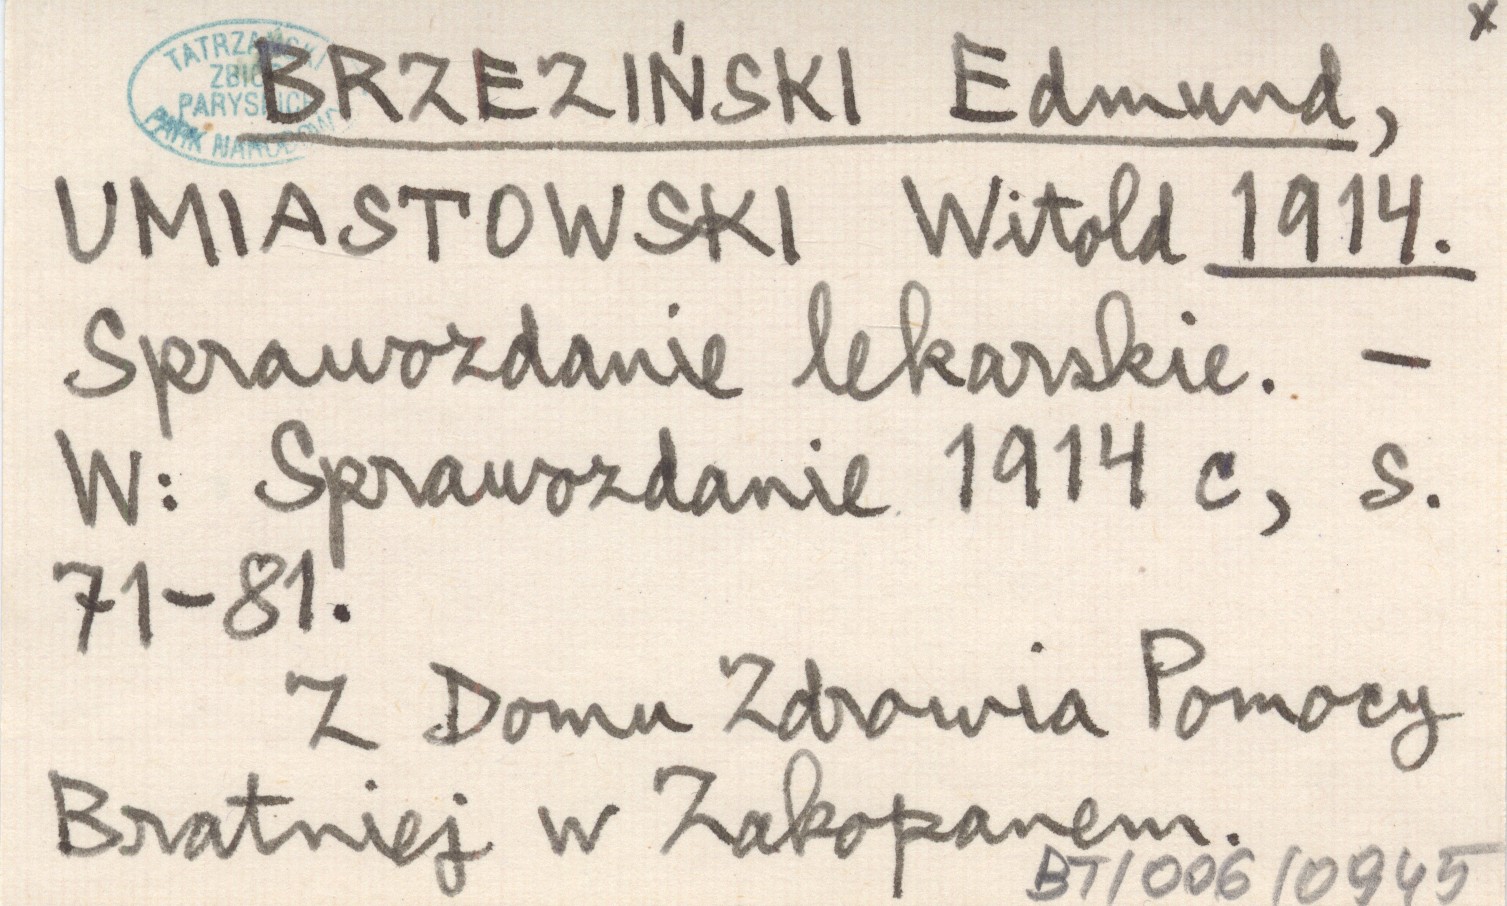 x
TATRZAŃSKI
ZBIORY
PARYSKICH
PARK NARODOWY
BRZEZIŃSKI Edmund,
UMIASTOWSKI Witold 1914.
Sprawozdanie lekarskie. –
W: Sprawozdanie 1914 c, s.
71–81.
Z Domu Zdrowia Pomocy
Bratniej w Zakopanem.
BT/006/0945